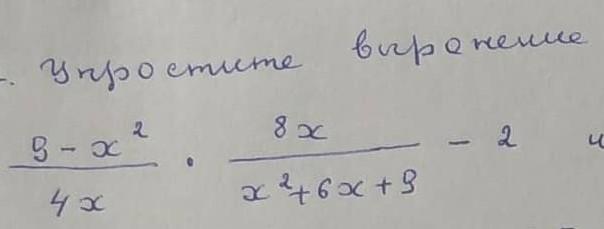 . Упростите выражение
9 - x² / 4x · 8x / x² + 6x + 9 - 2 и